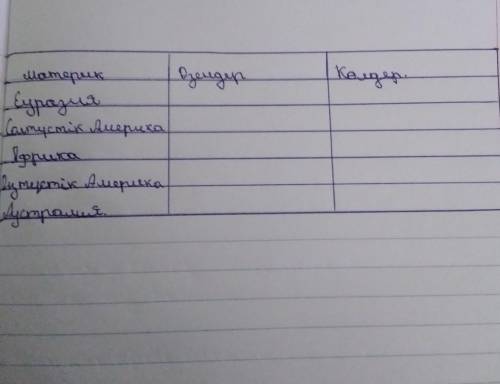 Материк Өзендер Көлдер.
Еуразия
Солтустік Америка
Африка
Оңтустік Америка
Аустралия.